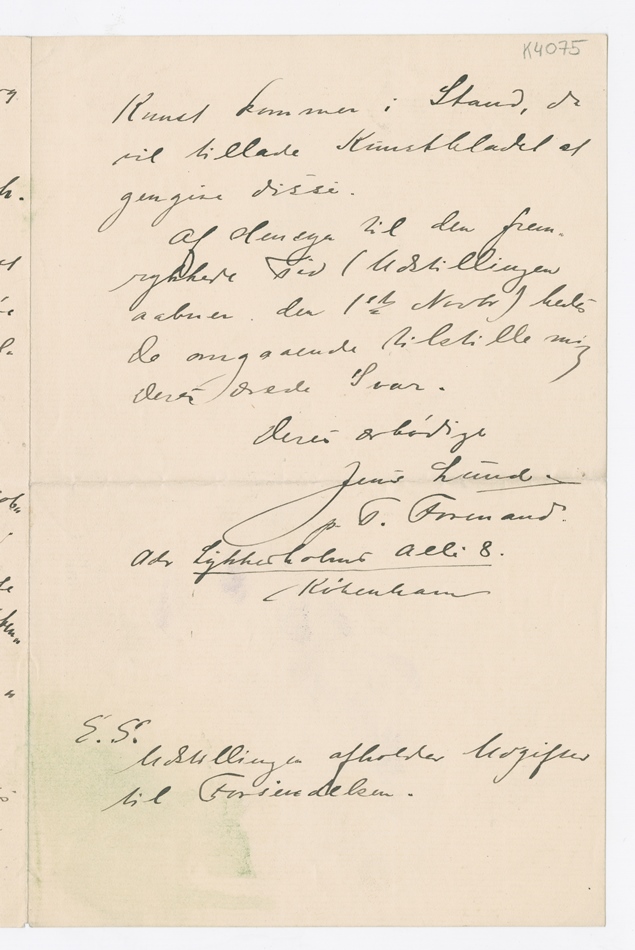 K4075
Kunst kommer i Stand, da
vil tillade Kunstbladet at
gengive disse.
Af Hensyn til den frem-
rykkede Tid (Udstillingen
aabner den 1ste Novbr) bedes
De omgaaende tilstille mig
Deres ærede Svar.
Deres ærbødige
Jens Lund
p. T. Formand.
Adr Lykkesholms Alle 8.
København
E. S.
Udstillingen afholder Udgifter
til Forsendelsen.